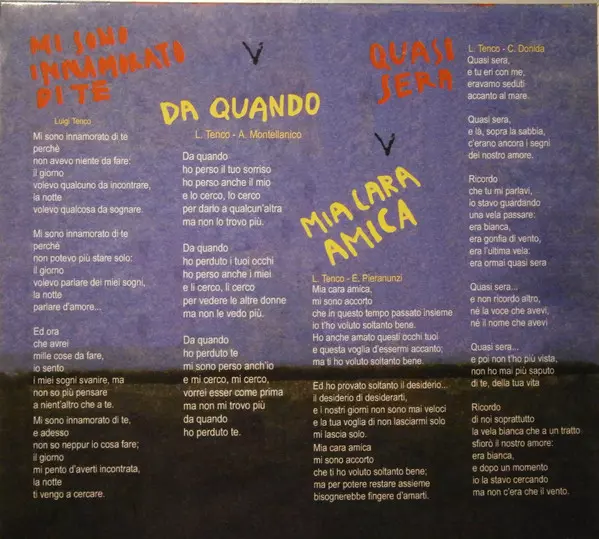 MI SONO
INNAMORATO
DI TE
Luigi Tenco
Mi sono innamorato di te
perchè
non avevo niente da fare:
il giorno
volevo qualcuno da incontrare,
la notte
volevo qualcosa da sognare.
Mi sono innamorato di te
perchè
non potevo più stare solo:
il giorno
volevo parlare dei miei sogni,
la notte
parlare d'amore...
Ed ora
che avrei
mille cose da fare,
io sento
i miei sogni svanire, ma
non so più pensare
a nient'altro che a te.
Mi sono innamorato di te,
e adesso
non so neppur io cosa fare;
il giorno
mi pento d'averti incontrata,
la notte
ti vengo a cercare.
DA QUANDO
L. Tenco - A. Montellanico
Da quando
ho perso il tuo sorriso
ho perso anche il mio
e lo cerco, lo cerco
per darlo a qualcun'altra
ma non lo trovo più.
Da quando
ho perduto i tuoi occhi
ho perso anche i miei
e li cerco, li cerco
per vedere le altre donne
ma non le vedo più.
Da quando
ho perduto te
mi sono perso anch'io
e mi cerco, mi cerco,
vorrei esser come prima
ma non mi trovo più
da quando
ho perduto te.
MIA CARA
AMICA
L. Tenco - E. Pieranunzi
Mia cara amica,
mi sono accorto
che in questo tempo passato insieme
io t'ho voluto soltanto bene.
Ho anche amato questi occhi tuoi
e questa voglia d'essermi accanto;
ma ti ho voluto soltanto bene.
Ed ho provato soltanto il desiderio...
il desiderio di desiderarti,
e i nostri giorni non sono mai veloci
e la tua voglia di non lasciarmi solo
mi lascia solo.
Mia cara amica
mi sono accorto
che ti ho voluto soltanto bene;
ma per potere restare assieme
bisognerebbe fingere d'amarti.
QUASI
SERA
L. Tenco - C. Donida
Quasi sera,
e tu eri con me,
eravamo seduti
accanto al mare.
Quasi sera,
e là, sopra la sabbia,
c'erano ancora i segni
del nostro amore.
Ricordo
che tu mi parlavi,
io stavo guardando
una vela passare:
era bianca,
era gonfia di vento,
era l'ultima vela:
era ormai quasi sera
Quasi sera...
e non ricordo altro,
nè la voce che avevi,
nè il nome che avevi
Quasi sera...
e poi non t'ho più vista,
non ho mai più saputo
di te, della tua vita
Ricordo
di noi soprattutto
la vela bianca che a un tratto
sfiorò il nostro amore:
era bianca,
e dopo un momento
io la stavo cercando
ma non c'era che il vento.